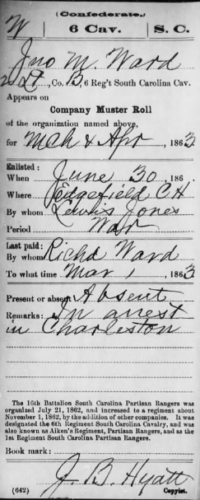 (Confederate.)
W 6 Cav. S. C.
Jno M. Ward
2nd Lt, Co. B, 6 Reg't South Carolina Cav.
Appears on
Company Muster Roll
of the organization named above,
for Mch & Apr, 1863
Enlisted:
When June 30, 186
Where Edgefield C.H.
By whom Lewis Jones
Period War
Last paid:
By whom Richd Ward
To what time Mar 1, 1863
Present or absent Absent
Remarks: In arrest
in Charleston
The 16th Battalion South Carolina Partisan Rangers was
organized July 21, 1862, and increased to a regiment about
November 1, 1862, by the addition of other companies. It was
designated the 6th Regiment South Carolina Cavalry, and was
also known as Aiken's Regiment, Partisan Rangers, and as the
1st Regiment South Carolina Partisan Rangers.
Book mark:
J. B. Hyatt
(642) Copyist.